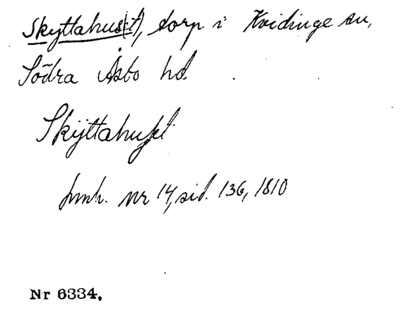 Skyttahus(et), torp i Kvidinge sn,
Södra Åsbo hd.
Skÿttahuset
Jmh. nr 14, sid. 136, 1810
Nr 6334.